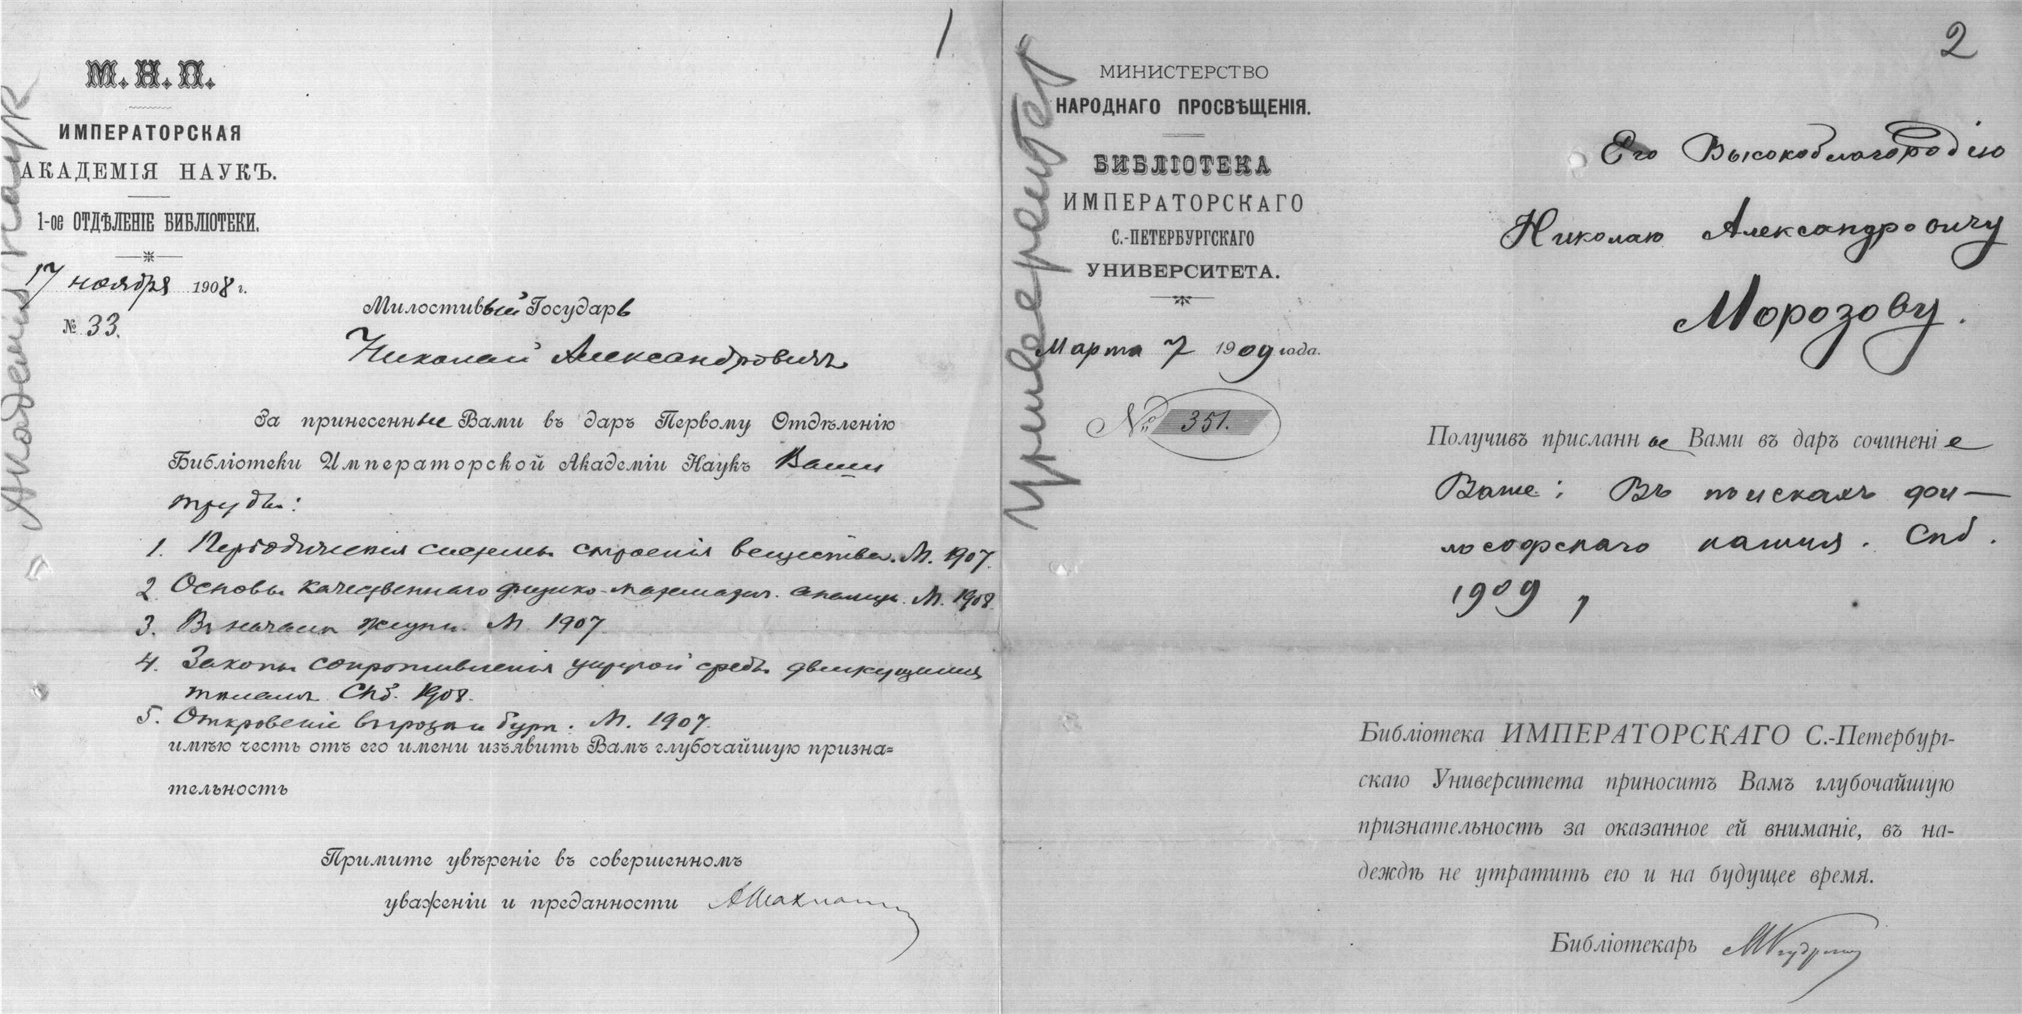 1
Академія Наукъ
М. Н. П.
ИМПЕРАТОРСКАЯ
АКАДЕМІЯ НАУКЪ.
1-ое ОТДѢЛЕНІЕ БИБЛІОТЕКИ.
17 ноября 1908 г.
№ 33.
Милостивый Государь
Николай Александровичъ
За принесенные Вами въ даръ Первому Отдѣленію
Библіотеки Императорской Академіи Наукъ Ваши
труды:
1. Періодическія системы строенія вещества. М. 1907.
2. Основы качественнаго физико-математич. анализа. М. 1908.
3. Въ началѣ жизни. М. 1907.
4. Законы сопротивленія упругой среды движущимся
тѣламъ Спб. 1908.
5. Откровеніе въ грозѣ и бурѣ. М. 1907.
имѣю честь отъ его имени изъявить Вамъ глубочайшую призна=
тельность
Примите увѣреніе въ совершенномъ
уваженіи и преданности АШахматов
2
Университет
МИНИСТЕРСТВО
НАРОДНАГО ПРОСВѢЩЕНІЯ.
БИБЛІОТЕКА
ИМПЕРАТОРСКАГО
С.-ПЕТЕРБУРГСКАГО
УНИВЕРСИТЕТА.
Марта 7 1909 года.
№ 351.
Его Высокоблагородію
Николаю Александровичу
Морозову.
Получивъ присланное Вами въ даръ сочиненіе
Ваше: Въ поискахъ фи—
лософскаго камня. Спб.
1909,
Библіотека ИМПЕРАТОРСКАГО С.-Петербург-
скаго Университета приноситъ Вамъ глубочайшую
признательность за оказанное ей вниманіе, въ на-
деждѣ не утратить его и на будущее время.
Библіотекарь